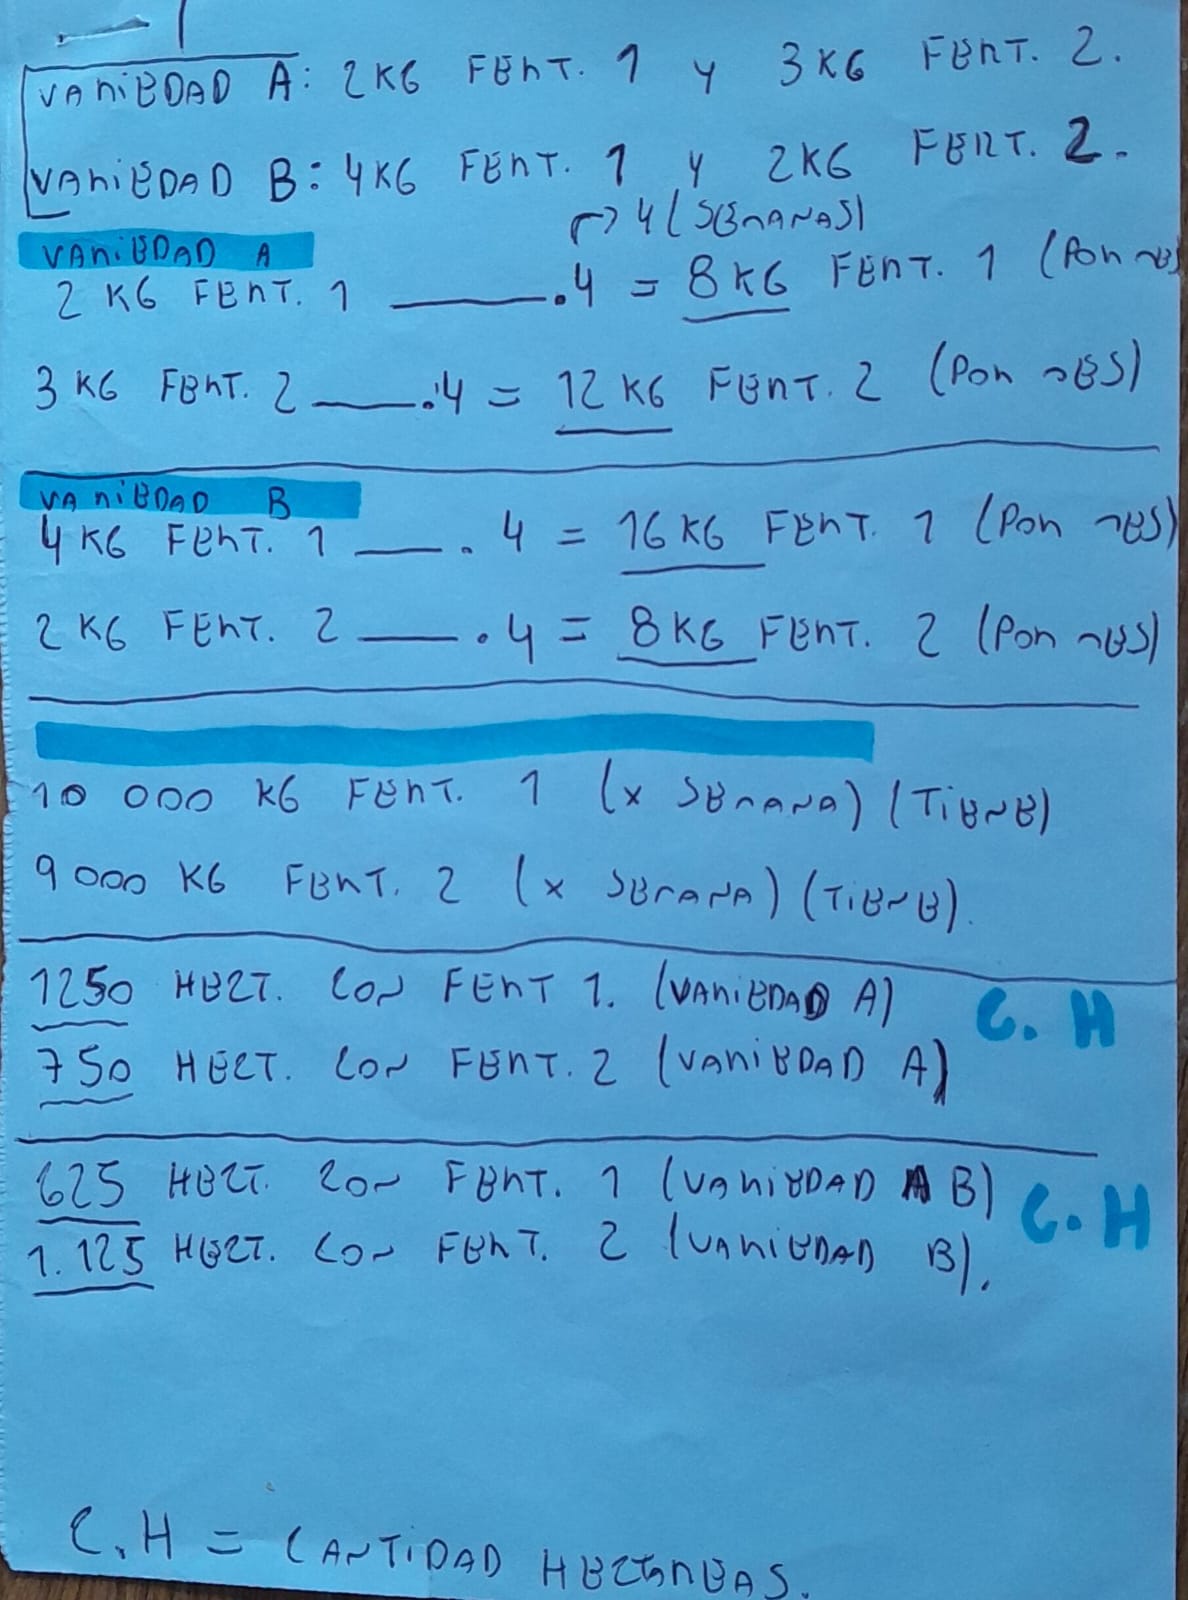 VARIEDAD A: 2 KG FERT. 1 Y 3 KG FERT. 2.
VARIEDAD B: 4 KG FERT. 1 Y 2 KG FERT. 2.
→ 4 (SEMANAS)
VARIEDAD A
2 KG FERT. 1 ——— .4 = 8 KG FERT. 1 (POR MES
3 KG FERT. 2 ——— .4 = 12 KG FERT. 2 (POR MES)
VARIEDAD B
4 KG FERT. 1 ——— . 4 = 16 KG FERT. 1 (POR MES)
2 KG FERT. 2 ——— . 4 = 8 KG FERT. 2 (POR MES)
10 000 KG FERT. 1 (x SEMANA) (TIENE)
9 000 KG FERT. 2 (x SEMANA) (TIENE).
1250 HECT. CON FERT 1. (VARIEDAD A) C. H
750 HECT. CON FERT. 2 (VARIEDAD A)
625 HECT. CON FERT. 1 (VARIEDAD B) C. H
1.125 HECT. CON FERT. 2 (VARIEDAD B).
C.H = CANTIDAD HECTAREAS.